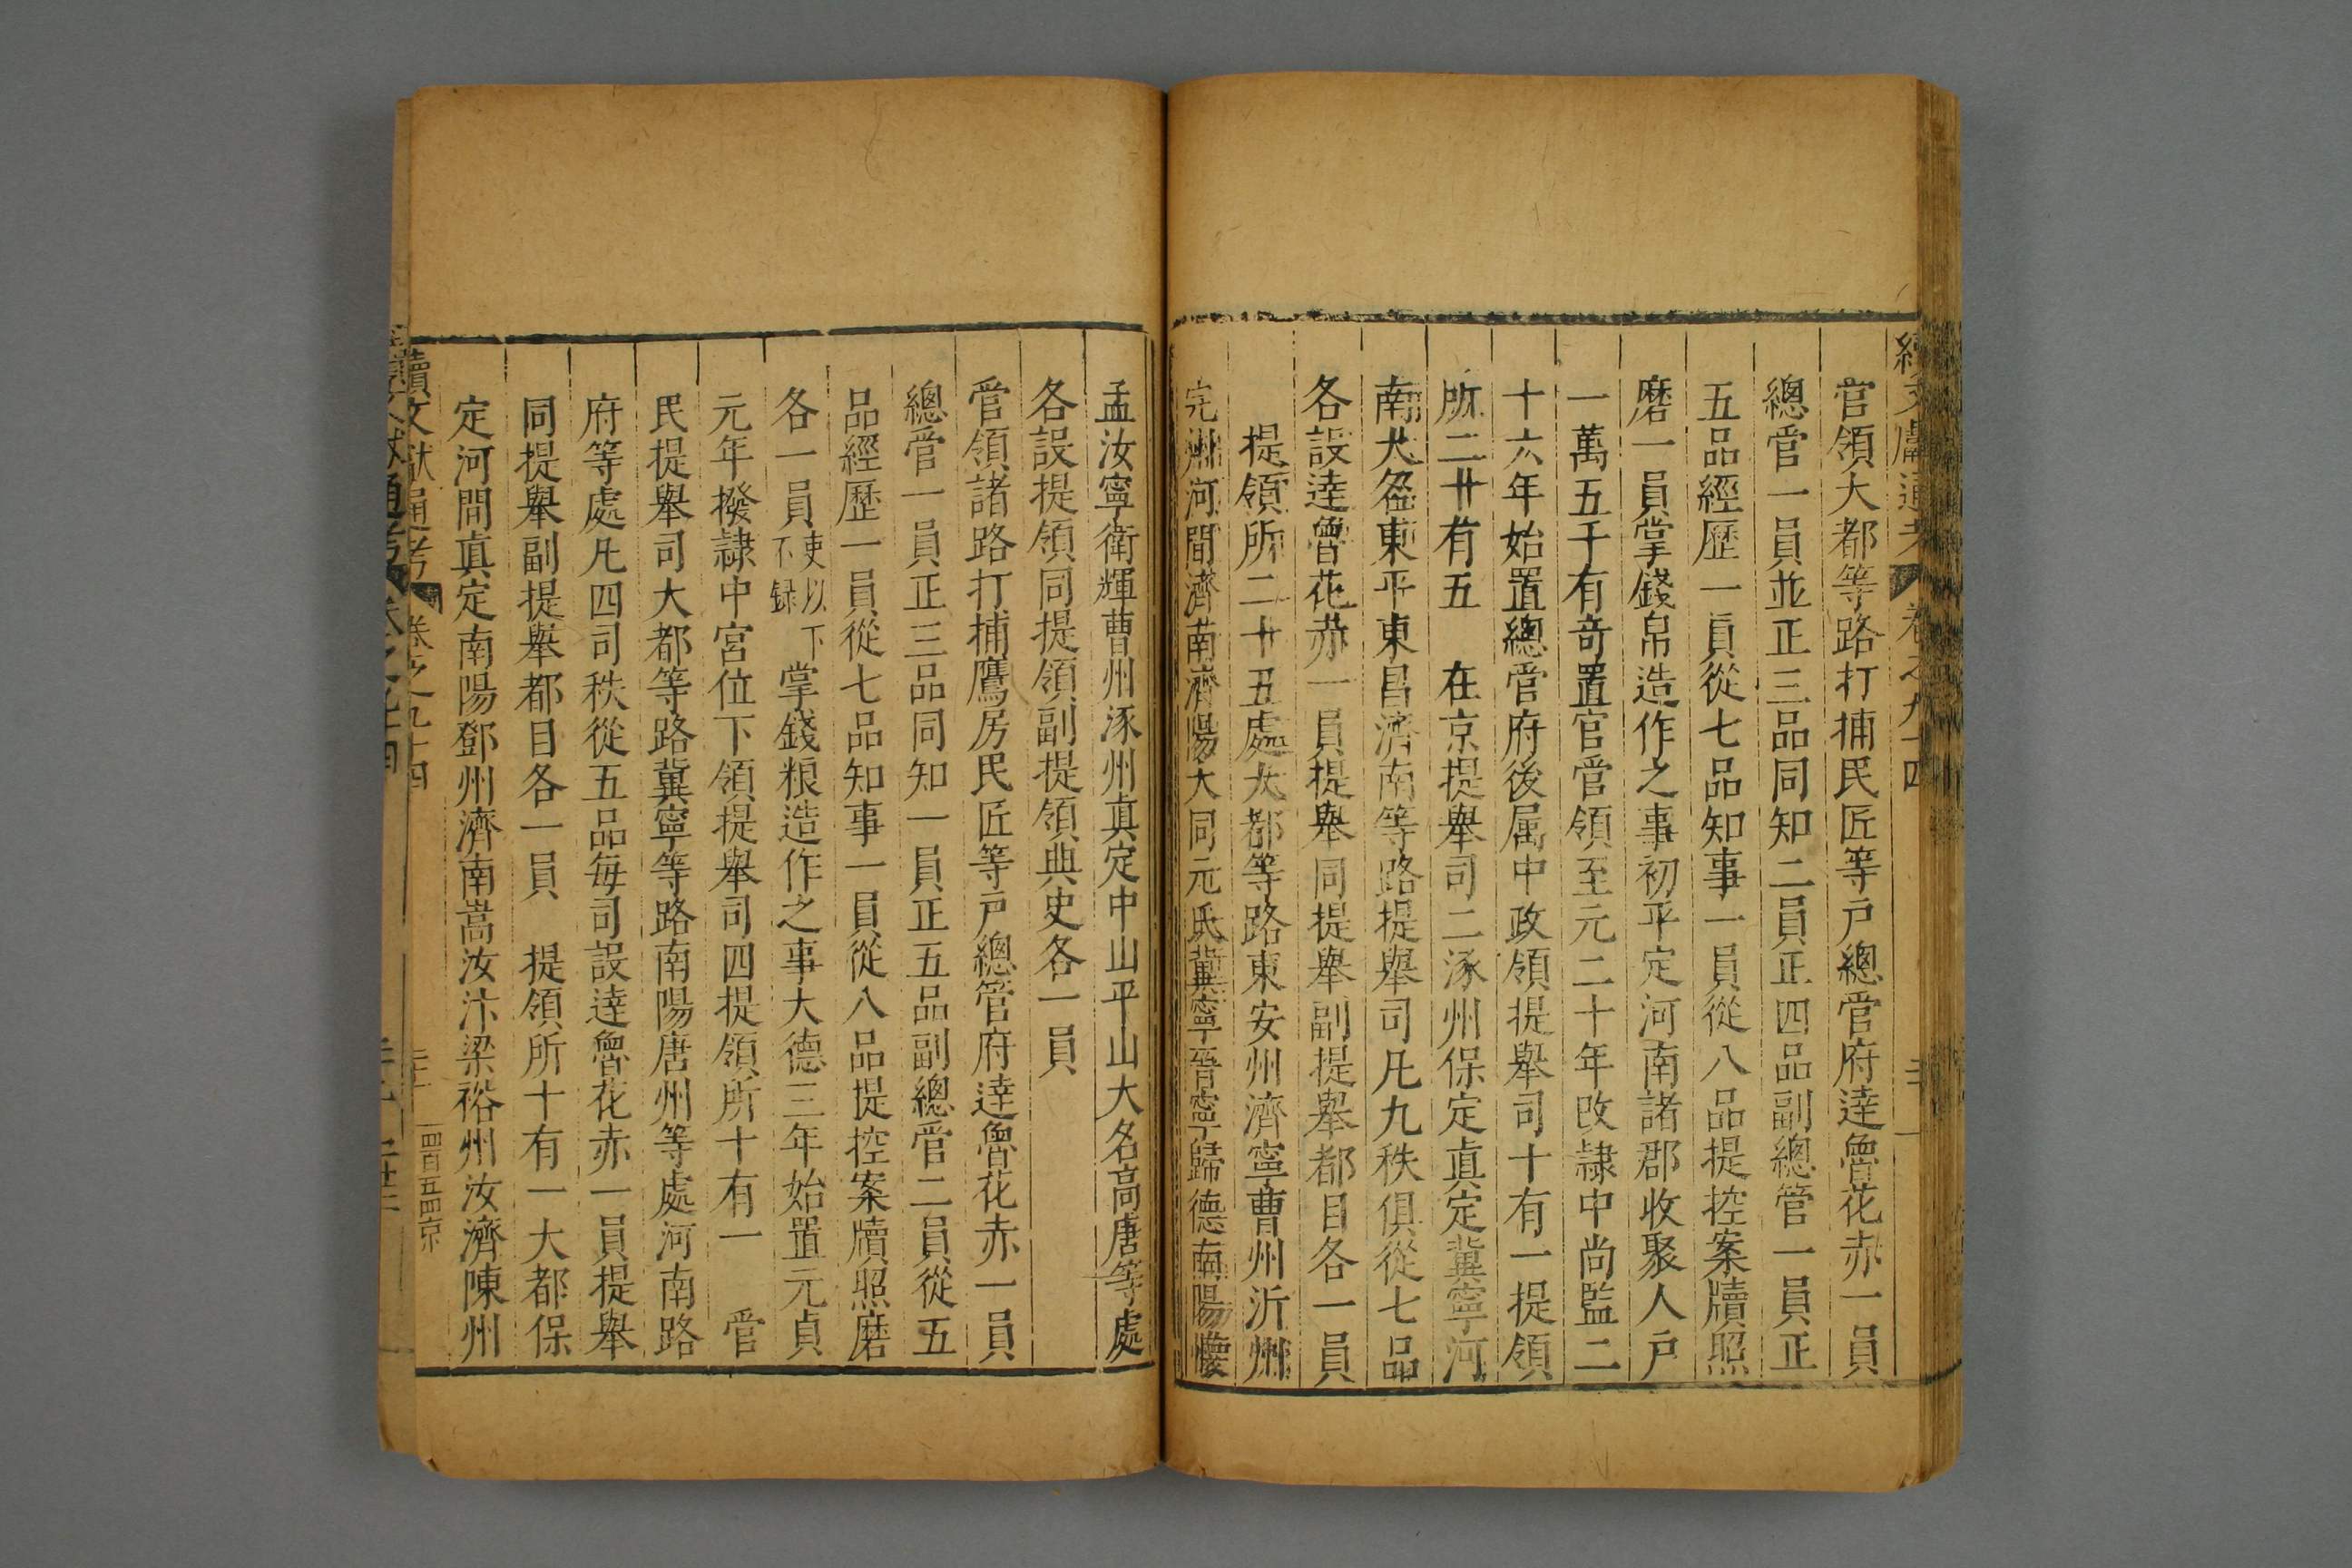 續文獻通考 卷之九十四
官領大都等路打捕民匠等戶總管府達魯花赤一員
總管一員並正三品同知二員正四品副總管一員正
五品經歷一員從七品知事一員從八品提控案牘照
磨一員掌錢帛造作之事初平定河南諸郡收聚人戶
一萬五千有奇置官管領至元二十年改隷中尚監二
十六年始置總管府後属中政領提舉司十有一提領
所二十有五　在京提舉司二涿州保定真定冀寧河
南大名東平東昌濟南等路提舉司凡九秩俱從七品
各設達魯花赤一員提舉同提舉副提舉都目各一員
提領所二十五處大都等路東安州濟寧曹州沂州
完州河間濟南濟陽大同元氏冀寧晉寧歸德南陽懷
孟汝寧衛輝曹州涿州真定中山平山大名高唐等處
各設提領同提領副提領典史各一員
管領諸路打捕鷹房民匠等戶總管府達魯花赤一員
總管一員正三品同知一員正五品副總管二員從五
品經歷一員從七品知事一員從八品提控案牘照磨
各一員吏以下不録掌錢粮造作之事大德三年始置元貞
元年撥隷中宮位下領提舉司四提領所十有一　管
民提舉司大都等路冀寧等路南陽唐州等處河南路
府等處凡四司秩從五品每司設達魯花赤一員提舉
同提舉副提舉都目各一員　提領所十有一大都保
定河間真定南陽鄧州濟南嵩汝汴梁裕州汝濟陳州
續文獻通考 卷之九十四
四百五四京